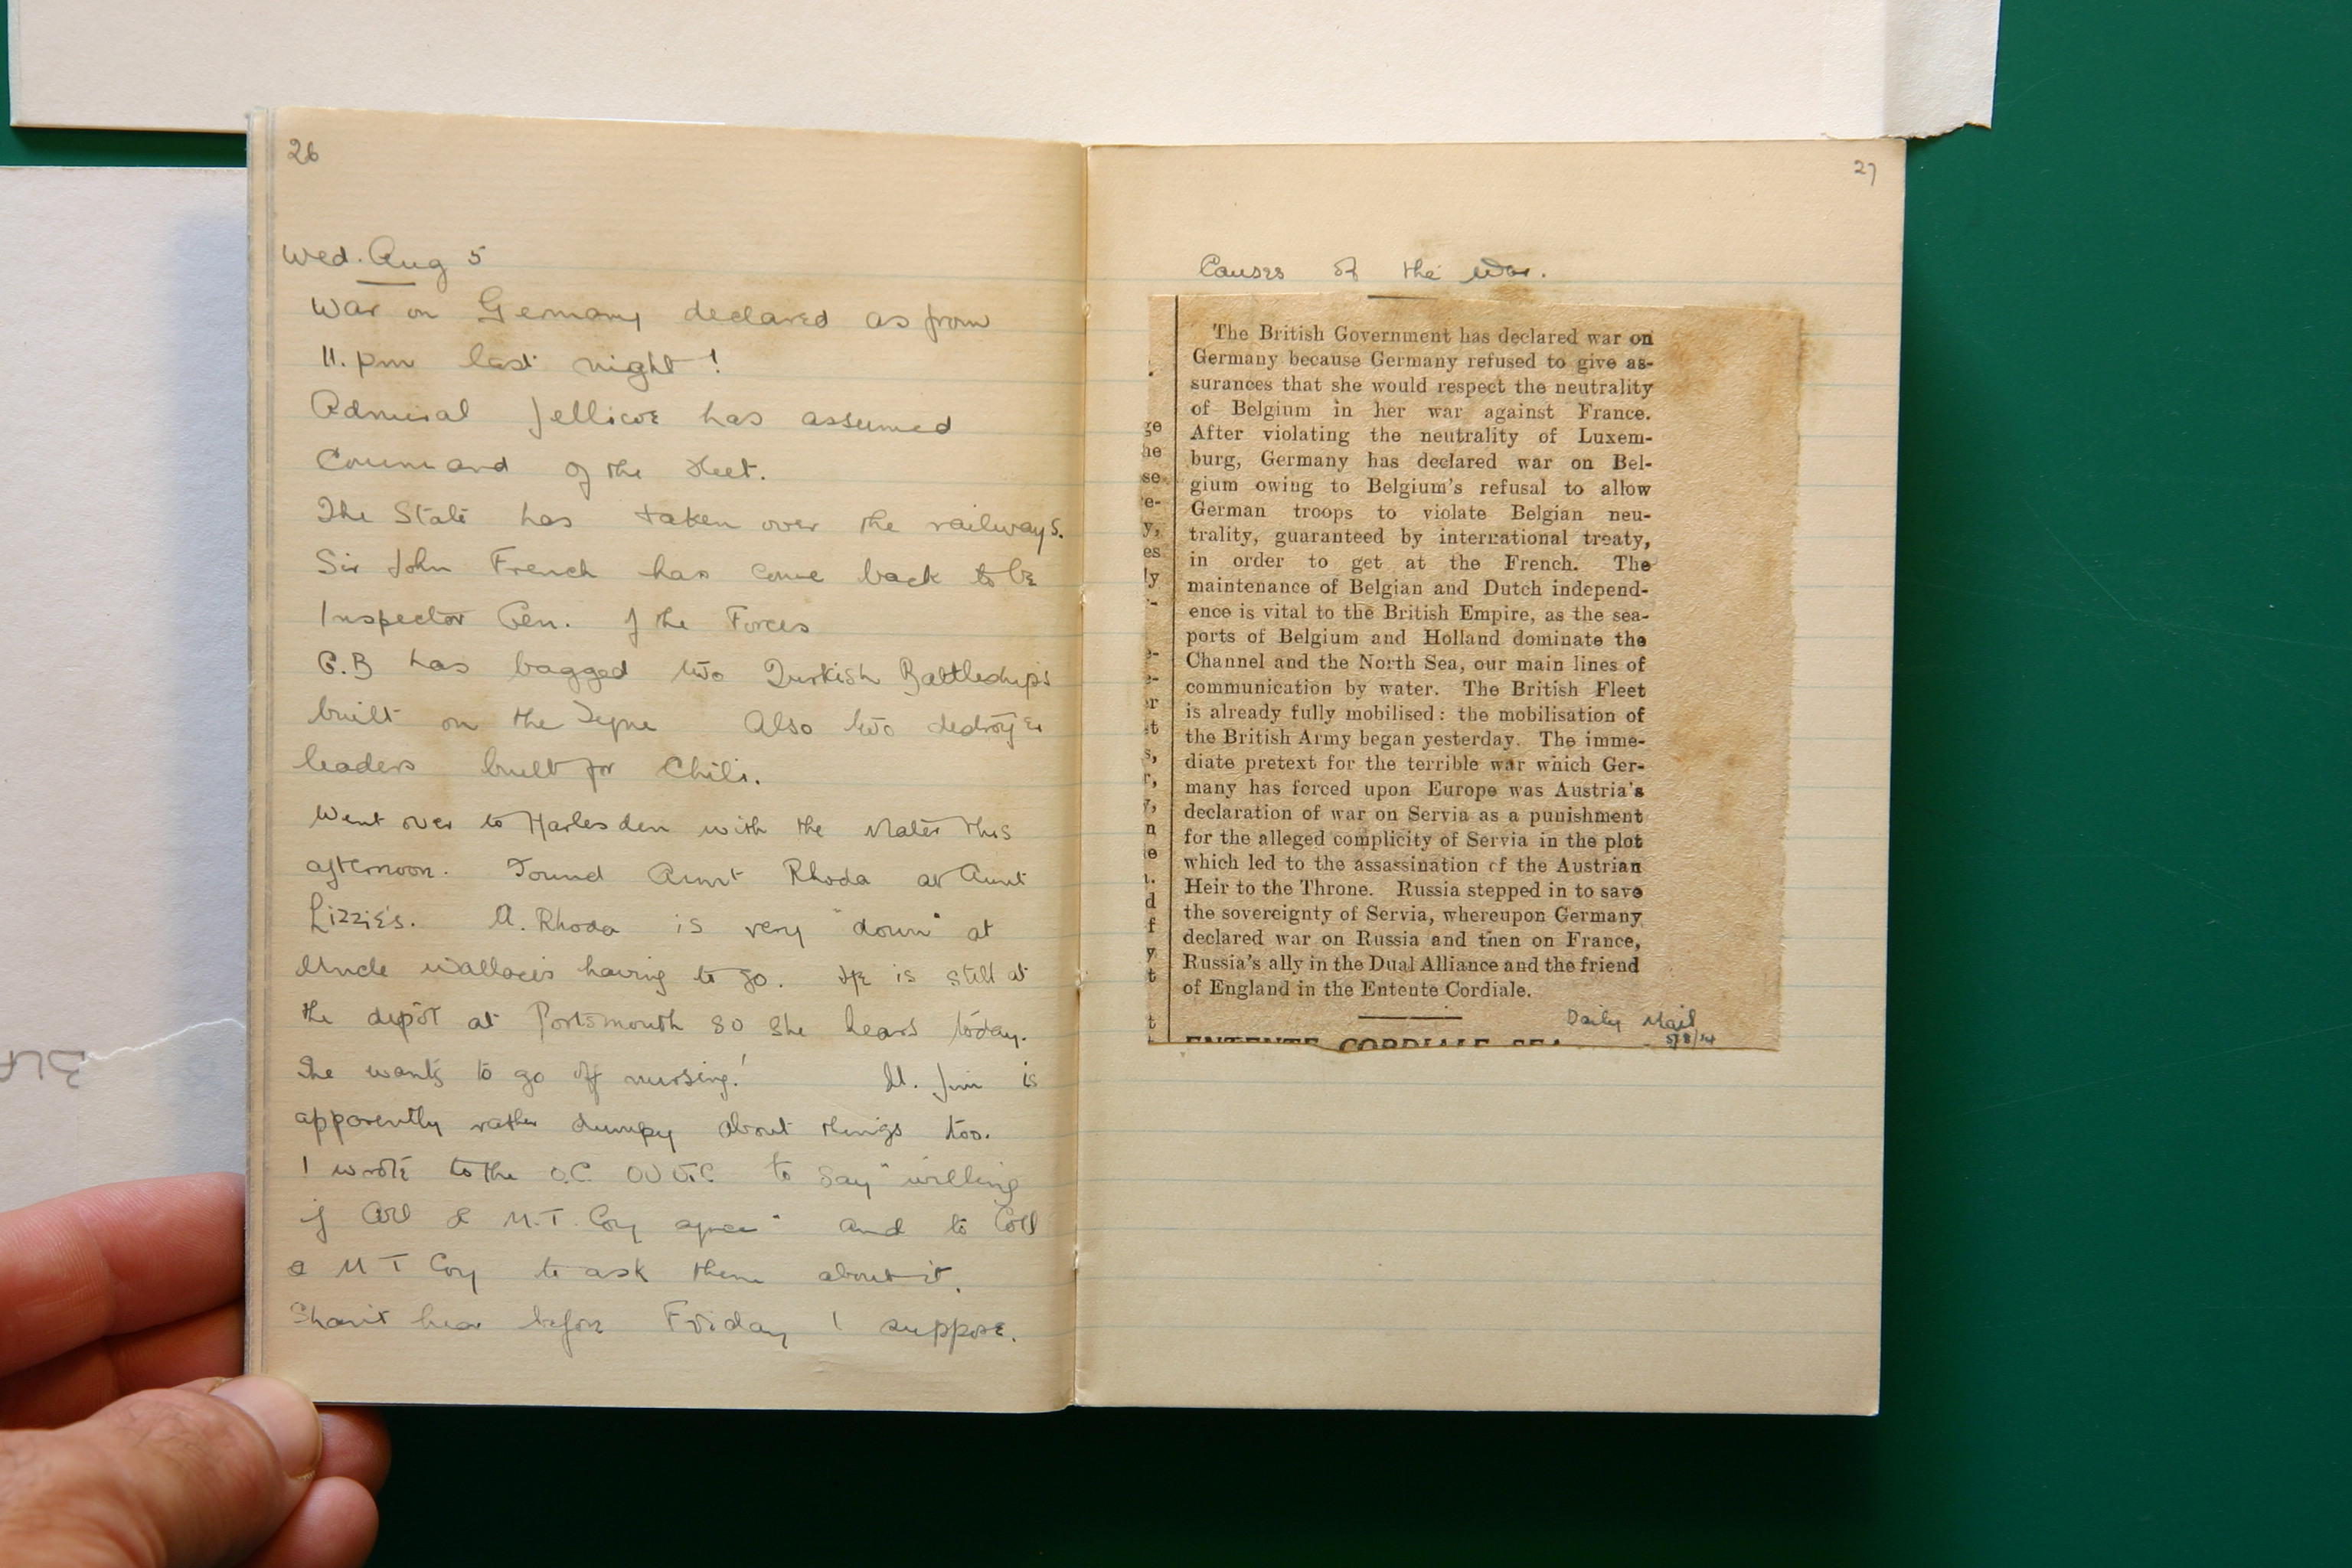 26
Wed. Aug 5
War on Germany declared as from
11. pm last night!
Admiral Jellicoe has assumed
Command of the Fleet.
The State has taken over the railways.
Sir John French has come back to be
Inspector Gen. of the Forces
G.B has bagged two Turkish Battleships
built on the Tyne Also two destroyer
leaders built for Chili.
Went over to Harlesden with the Mater this
afternoon. Found Aunt Rhoda at Aunt
Lizzie's. A. Rhoda is very "down" at
Uncle Wallace's having to go. He is still at
the depôt at Portsmouth so she hears today.
She wants to go off nursing! U. Jim is
apparently rather dumpy about things too.
I wrote to the O.C. to say "willing
if & M.T. Coy agree" and to
& M T Coy to ask them about it.
Shan't hear before Friday I suppose.
27
Causes of the War.
The British Government has declared war on
Germany because Germany refused to give as-
surances that she would respect the neutrality
of Belgium in her war against France.
After violating the neutrality of Luxem-
burg, Germany has declared war on Bel-
gium owing to Belgium's refusal to allow
German troops to violate Belgian neu-
trality, guaranteed by international treaty,
in order to get at the French. The
maintenance of Belgian and Dutch independ-
ence is vital to the British Empire, as the sea-
ports of Belgium and Holland dominate the
Channel and the North Sea, our main lines of
communication by water. The British Fleet
is already fully mobilised: the mobilisation of
the British Army began yesterday. The imme-
diate pretext for the terrible war which Ger-
many has forced upon Europe was Austria's
declaration of war on Servia as a punishment
for the alleged complicity of Servia in the plot
which led to the assassination of the Austrian
Heir to the Throne. Russia stepped in to save
the sovereignty of Servia, whereupon Germany
declared war on Russia and then on France,
Russia's ally in the Dual Alliance and the friend
of England in the Entente Cordiale.
Daily Mail
5/8/14
ENTENTE CORDIALE SEA